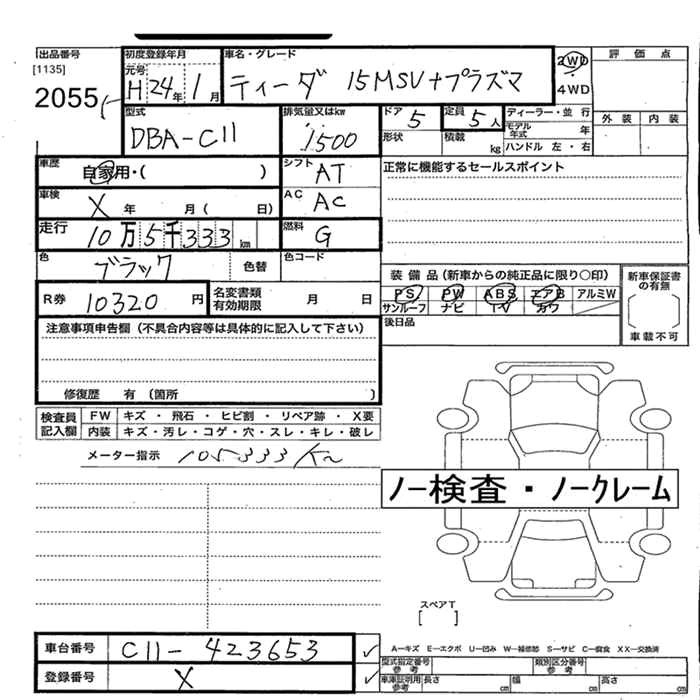 出品番号
[1135]
2055
初度登録年月
元号
H 24年 1月
車名・グレード
ティーダ 15MSV+プラズマ
2WD
4WD
評価点
外装 内装
型式
DBA-C11
排気量又はkw
1500
ドア 5
形状
定員 5人
積載 kg
ディーラー・並行
モデル年式 年
ハンドル 左・右
車歴
自家用・( )
シフト AT
正常に機能するセールスポイント
車検
X 年 月( 日)
AC
AC
走行
10万5千333km
燃料
G
色
ブラック 色替
色コード
R券 10320円
名変書類有効期限 月 日
装備品(新車からの純正品に限り○印)
PS PW ABS エアB アルミW
サンルーフ ナビ TV カワ
後日品
新車保証書の有無
車載不可
注意事項申告欄(不具合内容等は具体的に記入して下さい)
修復歴 有(箇所 )
検査員記入欄
FW キズ・飛石・ヒビ割・リペア跡・X要
内装 キズ・汚レ・コゲ・穴・スレ・キレ・破レ
メーター指示 105333Km
ノー検査・ノークレーム
スペアT
[ ]
車台番号 C11-423653
登録番号 X
A-キズ E-エクボ U-凹み W-補修跡 S-サビ C-腐食 XX-交換済
型式指定番号 参考
類別区分番号 参考
車庫証明用 参考
長さ cm 幅 cm 高さ cm